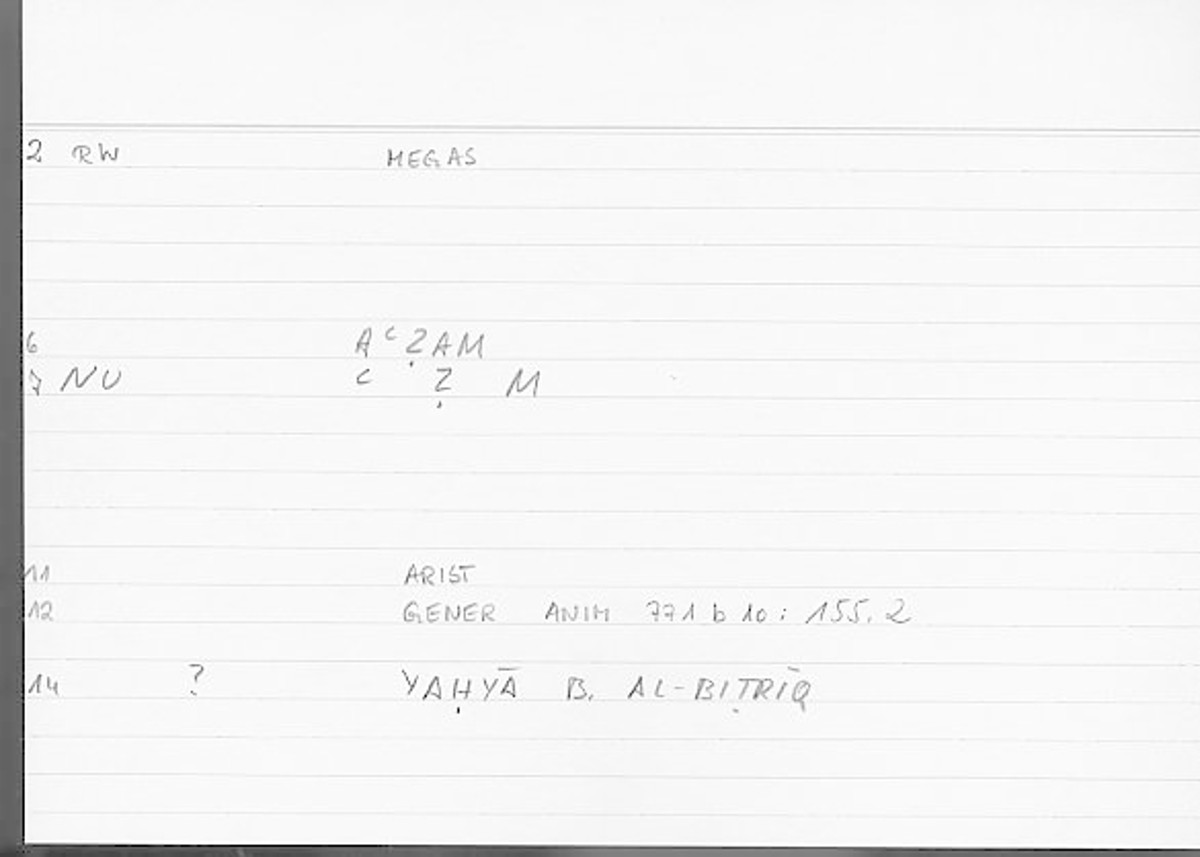 2 RW MEGAS
6 AʿẒAM
7 NU ʿ Ẓ M
11 ARIST
12 GENER ANIM 771 b 10 : 155.2
14 ? YAḤYĀ B. AL-BIṬRĪQ